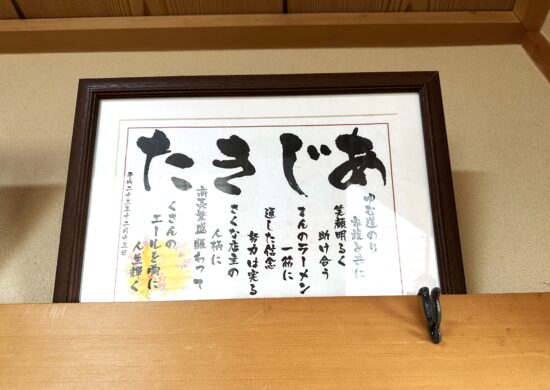 あじきた
ゆむ道のり
家族と共に
笑顔明るく
助け合う
まんのラーメン
一筋に
通した信念
努力は実る
さくな店主の
人柄に
商売繁盛賑わって
くさんの
エールを胸に
人生輝く
平成二十三年十二月十三日